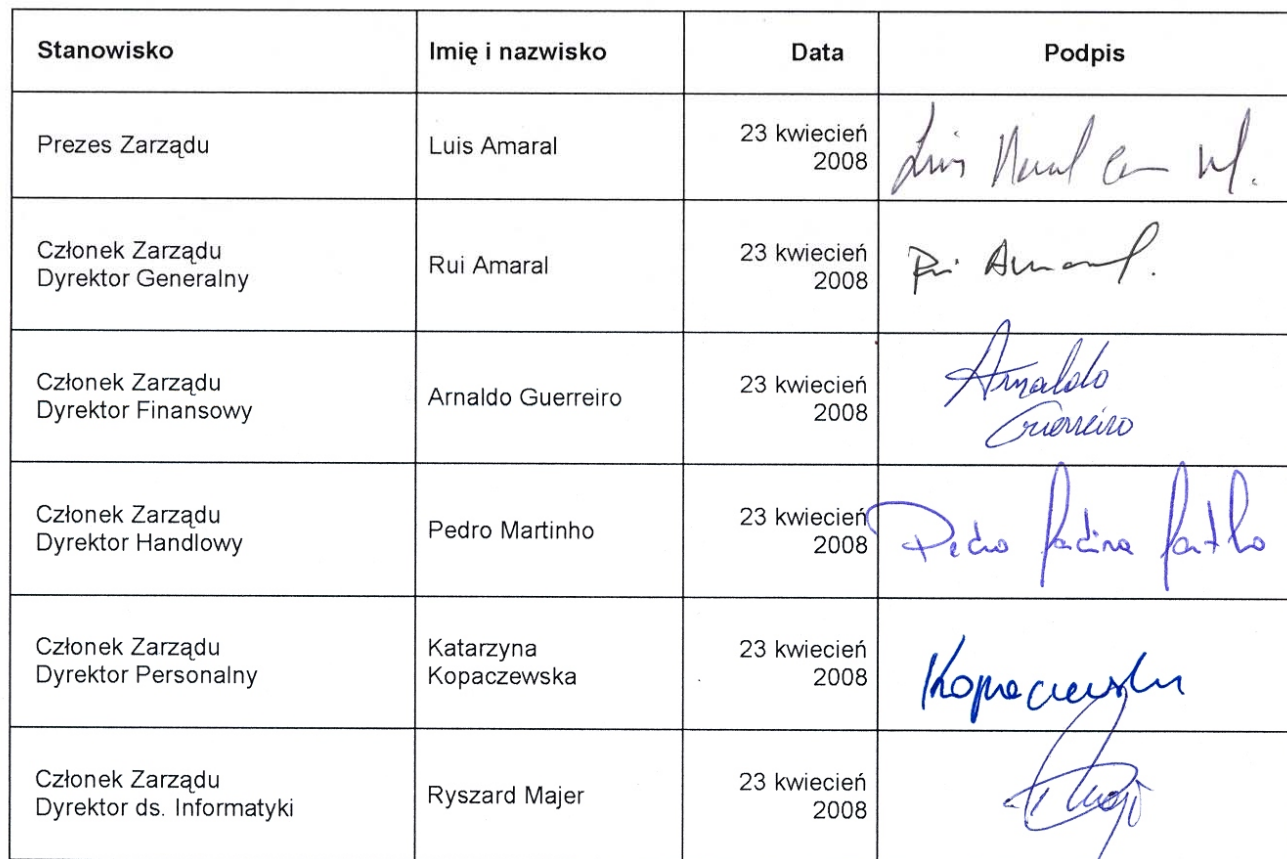 Stanowisko Imię i nazwisko Data Podpis
Prezes Zarządu Luis Amaral 23 kwiecień
2008 Luis
Członek Zarządu
Dyrektor Generalny Rui Amaral 23 kwiecień
2008 Rui Amaral.
Członek Zarządu
Dyrektor Finansowy Arnaldo Guerreiro 23 kwiecień
2008 Arnaldo
Guerreiro
Członek Zarządu
Dyrektor Handlowy Pedro Martinho 23 kwiecień
2008 Pedro
Członek Zarządu
Dyrektor Personalny Katarzyna
Kopaczewska 23 kwiecień
2008 Kopaczewska
Członek Zarządu
Dyrektor ds. Informatyki Ryszard Majer 23 kwiecień
2008